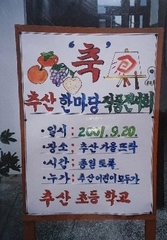 '축'
추산 한마당 작품전시회
• 일시 : 2001. 9. 20.
• 장소 : 추산 가을 뜨락
• 시간 : 종일토록
• 누가 : 추산 어린이 모두가
추산 초등 학교